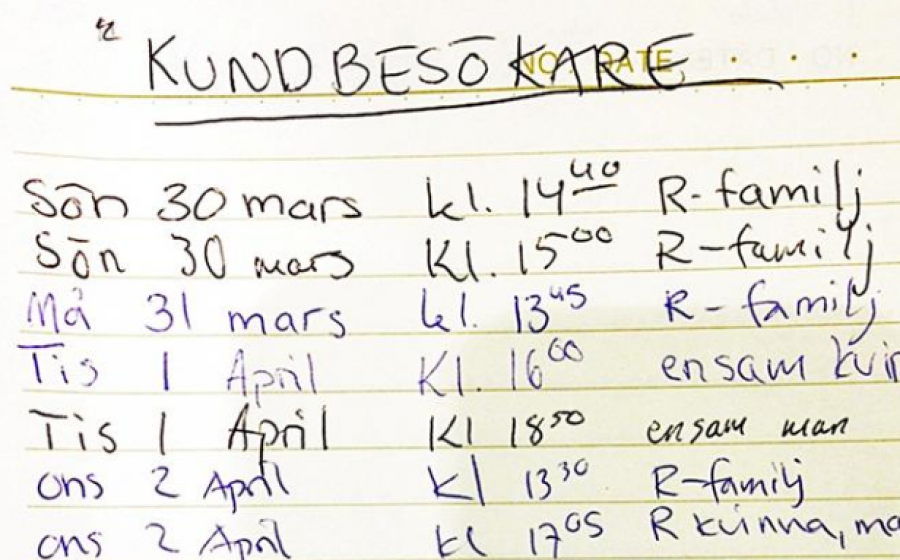 KUNDBESÖKARE
NO. DATE
Sön 30 mars kl. 14⁴⁰ R-familj
Sön 30 mars Kl. 15⁰⁰ R-familj
Må 31 mars kl. 13⁴⁵ R-familj
Tis 1 April Kl. 16⁰⁰ ensam
Tis 1 April Kl 18⁵⁰ ensam man
ons 2 April Kl 13³⁰ R-familj
ons 2 April kl 17⁰⁵ R kvinna,